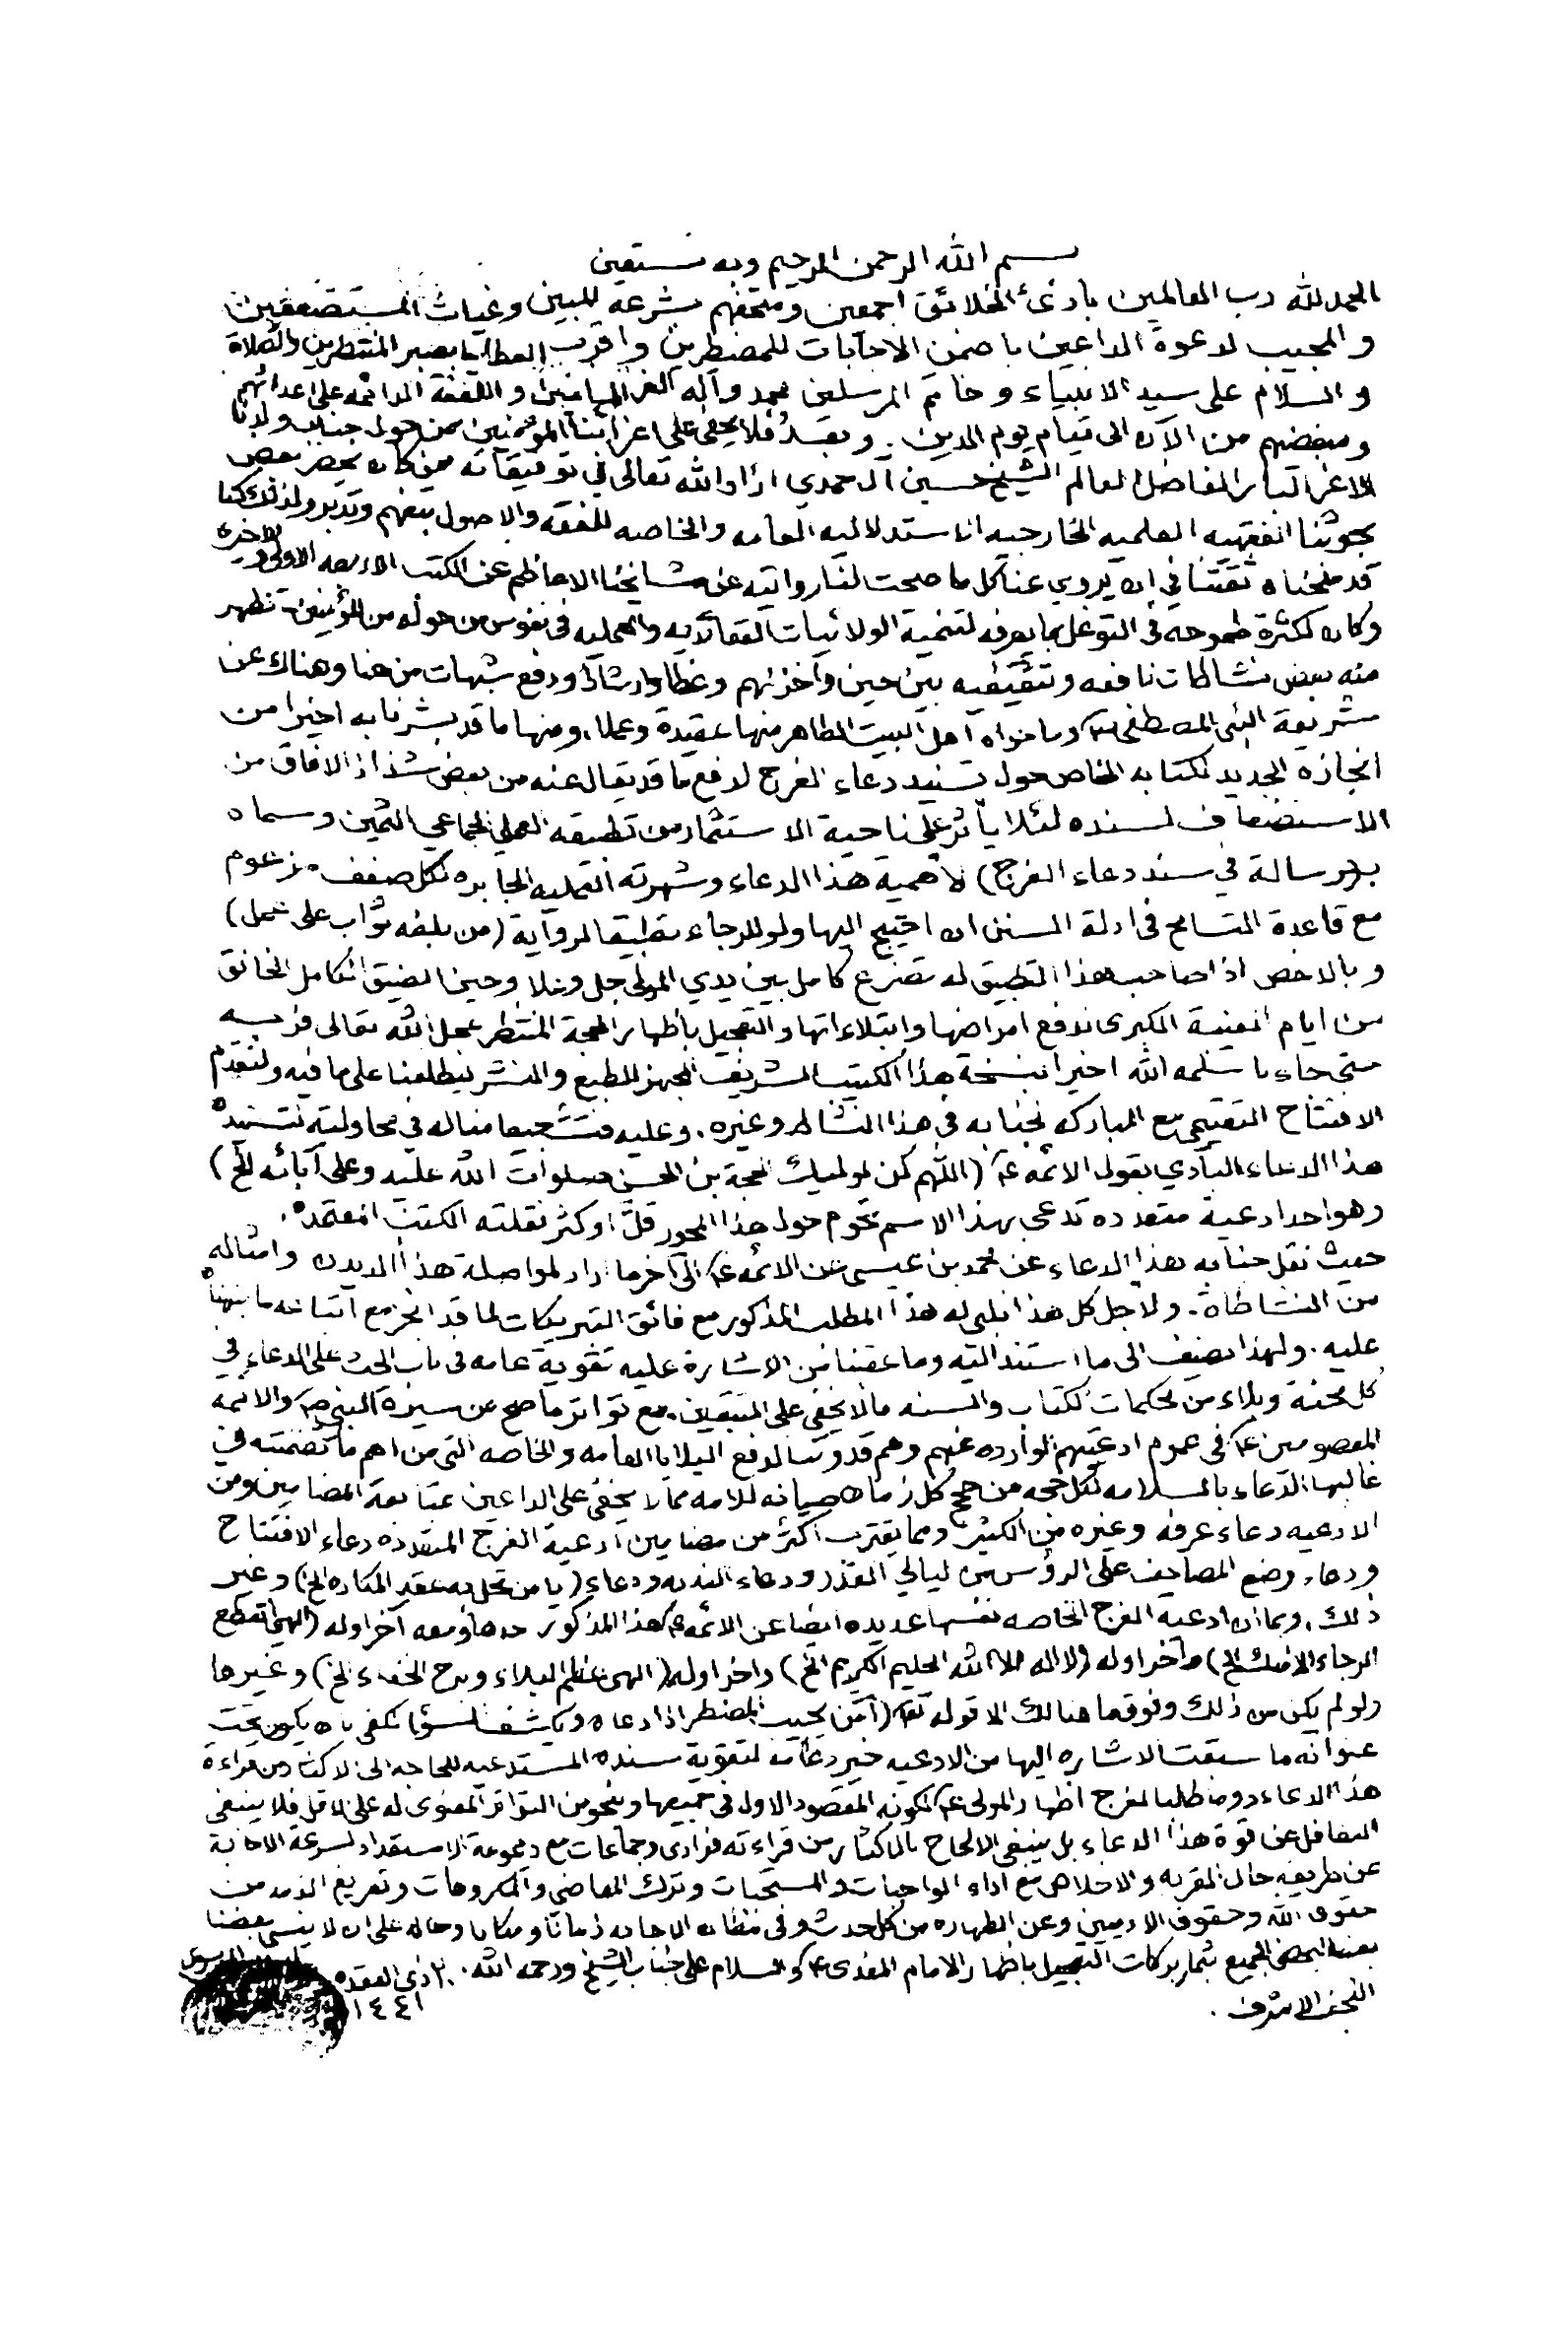 بسم الله الرحمن الرحيم وبه نستعين
الحمد لله رب العالمين بارئ الخلائق اجمعين ومتحفهم بشرعه المبين وغياث المستضعفين
والمجيب لدعوة الداعين باضمن الاجابات للمضطرين واقرب العطايا بصبر المنتظرين والصلاة
والسلام على سيد الانبياء وخاتم المرسلين محمد وآله الغر الميامين واللعنة الدائمه على اعدائهم
ومبغضيهم من الآن الى قيام يوم الدين. وبعد فلا يخفى على اعزائنا المؤمنين ممن حول جناب ولدنا
الاغر البار الفاضل العالم الشيخ حسين آل حمدي زاد الله تعالى في توفيقاته ممن كان يحضر بعض
بحوثنا الفقهيه العلميه الخارجيه الاستدلاليه العامه والخاصه للفقه والاصول بتفهم وتدبر ولذلك كنا
قد منحناه ثقتنا في ان يروي عنا كل ما صحت لنا روايته عن مشايخنا الاعاظم عن الكتب الاربعه الاولى والاخرى
وكان لكثرة طموحه في التوغل بما يعرفه لتنمية الولائيات العقائديه والعمليه في نفوس من حوله من المؤمنين تظهر
منه بعض نشاطات نافعه وتثقيفيه بين حين وآخر لهم وعظا وارشادا ودفع شبهات من هنا وهناك عن
شريعة النبي المصطفى ص وما حواه اهل البيت الطاهر منها عقيدة وعملا، ومنها ما قد بشرنا به اخيرا من
انجازه الجديد لكتابه الخاص حول تسنيد دعاء الفرج لدفع ما قد يقال عنه من بعض شذاذ الافاق من
الاستضعاف لسنده لئلا يأثر على ناحية الاستثمار من تطبيقه العملي الجماعي الثمين وسماه
بـ(رسالة في سند دعاء الفرج) لاهمية هذا الدعاء وشهرته العمليه الجابره لكل ضعف مزعوم
مع قاعدة التسامح في ادلة السنن ان احتيج اليها ولو للرجاء تطبيقا لرواية (من بلغه ثواب على عمل)
وبالاخص اذا صاحب هذا التطبيق له تضرع كامل بين يدي المولى جل وعلا وحين الضيق الكامل الخانق
من ايام الغيبة الكبرى لدفع امراضها وابتلاءاتها والتعجيل بأظهار الحجة المنتظر عجل الله تعالى فرجه
حتى جاءنا سلمه الله اخيرا بنسخة هذا الكتيب الشريف المجهز للطبع والنشر ليطلعنا على ما فيه ولنقدم
الافتتاح التقييمي مع المباركه لجنابه في هذا النشاط وغيره. وعليه فتشجيعا مناله في محاولته لتسنيده
هذا الدعاء البادي بقول الائمه ع (اللهم كن لوليك الحجة بن الحسن صلواتك عليه وعلى آبائه الخ)
وهو احد ادعية متعدده تدعى بهذا الاسم تحوم حول هذا المحور قل او كثر نقلته الكتب المعتمده.
حيث نقل جنابه هذا الدعاء عن محمد بن عيسى عن الائمه ع الى آخر ما اراد لمواصلة هذا الديدن وامثاله
من النشاطات. ولاجل كل هذا نلبي له هذا المطلب المذكور مع فائق التبريكات لما قد انجز مع اتباعه ما نبهناه
عليه. ولهذا نضيف الى ما استند اليه وما عقبنا من الاشارة عليه تقوية عامه في باب الحث على الدعاء في
كل محنة وبلاء من محكمات الكتاب والسنه ما لا يخفى على المتتبعين. مع تواتر ما صح من سيرة النبي ص والائمه
المعصومين ع في عموم ادعيتهم الوارده عنهم وهم قدوتنا لدفع البلايا العامه والخاصه التي من اهم ما تضمنته في
غالبها الدعاء بالسلامه لكل حجه من حجج كل زمان صيانه للامه مما لا يخفى على الداعين بمتابعة المضامين ومن
الادعيه دعاء عرفه وغيره من الكثير ومما يقترب اكثر من مضامين ادعية الفرج المتعدده دعاء الافتتاح
ودعاء وضع المصاحف على الرؤس من ليالي القدر ودعاء الندبه ودعاء (يا من تحل به عقد المكاره الخ) وغير
ذلك. وبما ان ادعية الفرج الخاصه نفسها عديده ايضا عن الائمه ع كهذا المذكور وحده او معه آخر اوله (الهي انقطع
الرجاء الا منك الخ) وآخر اوله (لا اله الا الله الحليم الكريم الخ) واخر اوله (الهي عظم البلاء وبرح الخفاء الخ) وغيرها
ولو لم يكن من ذلك وفوقها هنالك الا قوله تعالى (أمن يجيب المضطر اذا دعاه ويكشف السوء) لكفى بان يكون تحت
عنوانه ما سبقت الاشاره اليها من الادعيه خير دعامة لتقوية سنده المستدعيه للحاجه الى الاكثار من قراءة
هذا الدعاء دوما طلبا لفرج اظهار المولى ع لكونه المقصود الاول في جميعها وبنحو من التواتر المعنوي له على الاقل فلا ينبغي
التغافل عن قوة هذا الدعاء بل ينبغي الالحاح بالاكثار من قراءته فرادى وجماعات مع ديمومة الاستعداد لسرعة الاجابة
عن طريق حال القربه والاخلاص مع اداء الواجبات والمستحبات وترك المعاصي والمكروهات وتفريغ الذمه من
حقوق الله وحقوق الادميين وعن الطهاره من كل حدث وفي مظان الاجابه زمانا ومكانا وحاله على ان لا ينسى بعضنا
بعضا ليحضى الجميع بثمار بركات التعجيل باظهار الامام المفدى ع والسلام على جناب الشيخ ورحمه الله. ٢٠ ذي القعده
النجف الاشرف. ١٤٤١